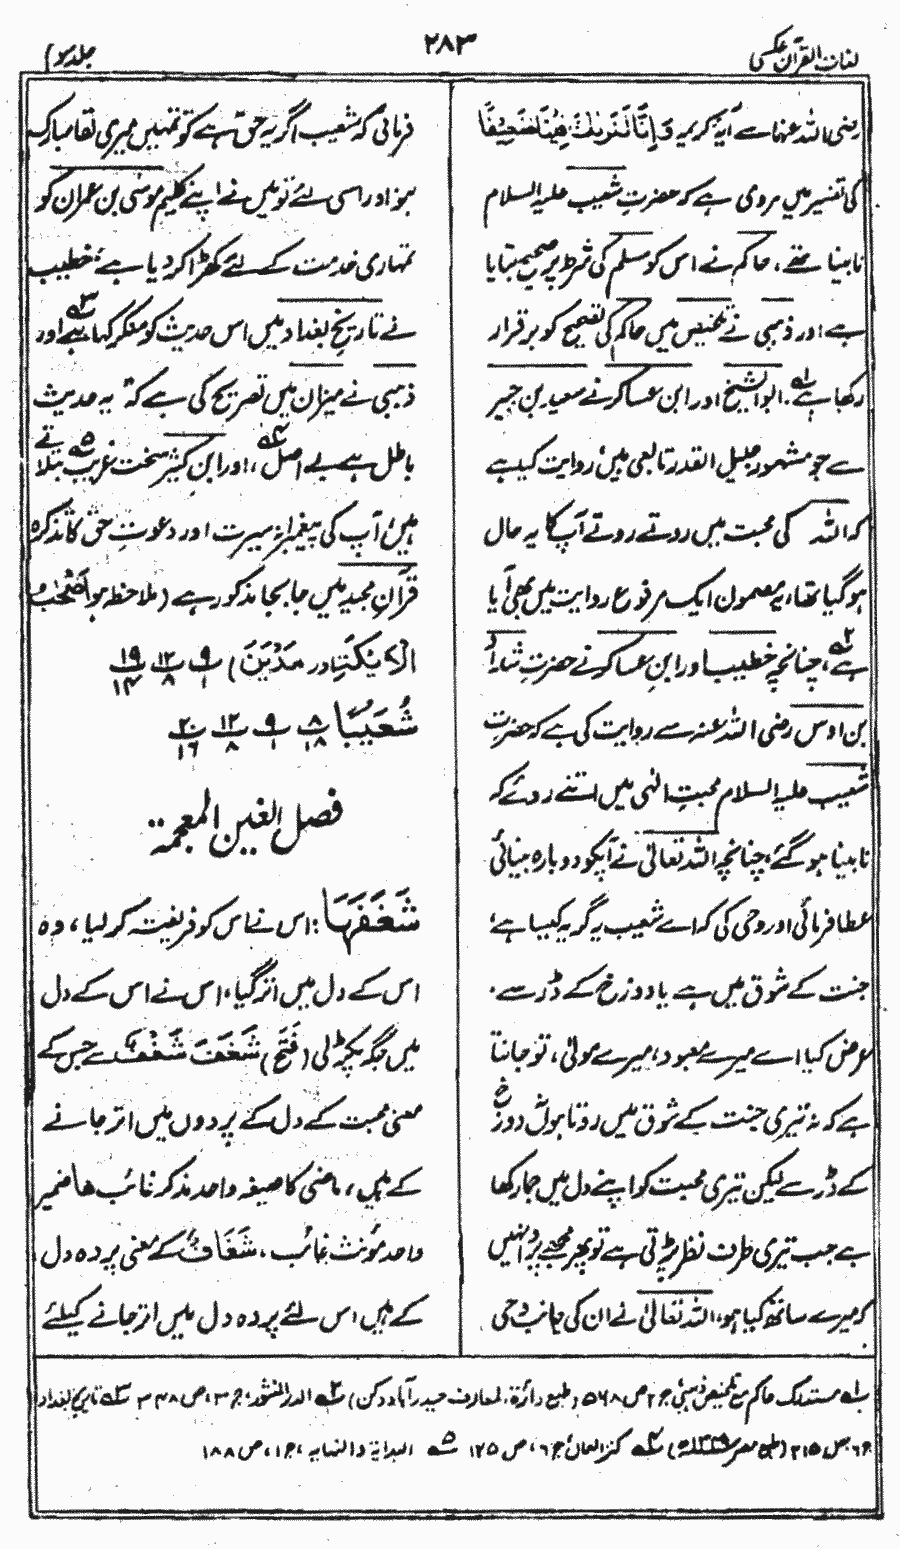 لغات القرآن عکسی
۲۸۳
جلد سوم
رضی اللہ عنہما سے آیۂ کریمہ وَاِنَّا لَنَرٰىكَ فِیْنَا ضَعِیْفًا
کی تفسیر میں مروی ہے کہ حضرت شعیب علیہ السلام
نابینا تھے، حاکم نے اس کو مسلم کی شرط پر صحیح بتایا
ہے اور ذہبی نے تلخیص میں حاکم کی تصحیح کو برقرار
رکھا ہے۔ ابو الشیخ اور ابن عساکر نے سعید بن جبیر
سے جو مشہور جلیل القدر تابعی ہیں روایت کیا ہے
کہ اللہ کی محبت میں روتے روتے آپ کا یہ حال
ہو گیا تھا، یہ مضمون ایک مرفوع روایت میں بھی آیا
ہے، چنانچہ خطیب اور ابن عساکر نے حضرت شداد
بن اوس رضی اللہ عنہ سے روایت کی ہے کہ حضرت
شعیب علیہ السلام محبتِ الٰہی میں اتنے روئے کہ
نابینا ہو گئے، چنانچہ اللہ تعالیٰ نے آپکو دوبارہ بینائی
عطا فرمائی اور وحی کی کہ اے شعیب یہ گریہ کیسا ہے
جنت کے شوق میں ہے یا دوزخ کے ڈر سے۔
عرض کیا اے میرے معبود، میرے مولیٰ، تو جانتا
ہے کہ نہ تیری جنت کے شوق میں روتا ہوں نہ دوزخ
کے ڈر سے لیکن تیری محبت کو اپنے دل میں جما رکھا
ہے جب تیری طرف نظر پڑتی ہے تو پھر مجھے پروا نہیں
کہ میرے ساتھ کیا ہو، اللہ تعالیٰ نے ان کی جانب وحی
فرمائی کہ شعیب اگر یہ حق ہے تو تمہیں میری لقا مبارک
ہو اور اسی لئے تو میں نے اپنے کلیم موسٰی بن عمران کو
تمہاری خدمت کے لئے کھڑا کر دیا ہے، خطیب
نے تاریخ بغداد میں اس حدیث کو منکر کہا ہے اور
ذہبی نے میزان میں تصریح کی ہے کہ " یہ حدیث
باطل ہے بے اصل، اور ابن کثیر سخت غریب بتلاتے
ہیں، آپ کی پیغمبرانہ سیرت اور دعوتِ حق کا تذکرہ
قرآنِ مجید میں جا بجا مذکور ہے (ملاحظہ ہو اَصْحٰبُ
الْاَیْكَۃِ اور مَدْیَنَ) ۹ ۱ ۱۲ ۸ ۱۹ ۱۴
شُعَیْبًا ۸ ۱۸ ۹ ۱ ۱۲ ۸ ۲۰ ۱۶
فصل الغین المعجمۃ
شَغَفَهَا: اس نے اس کو فریفتہ کر لیا، وہ
اس کے دل میں اتر گیا، اس نے اس کے دل
میں جگہ پکڑ لی (فَتَحَ) شَغَفَ شَغْفٌ سے جس کے
معنی محبت کے دل کے پردوں میں اتر جانے
کے ہیں، ماضی کا صیغہ واحد مذکر غائب ھا ضمیر
واحد مؤنث غائب، شَغَافٌ کے معنی پردہ دل
کے ہیں اس لئے پردہ دل میں اتر جانے کیلئے
۱؎ مستدرک حاکم مع تلخیص ذہبی ج ۲ ص ۵۶۸ (طبع دائرۃ المعارف حیدرآباد دکن) ۲؎ الدر المنثور، ج ۳، ص ۳۴۸ ۳؎ تاریخ بغداد
ج ۶ ص ۳۱۵ (طبع مصر ۱۳۴۹ھ) ۴؎ کنز العمال ج ۶، ص ۱۲۵ ۵؎ البدایۃ والنہایہ، ج ۱، ص ۱۸۸